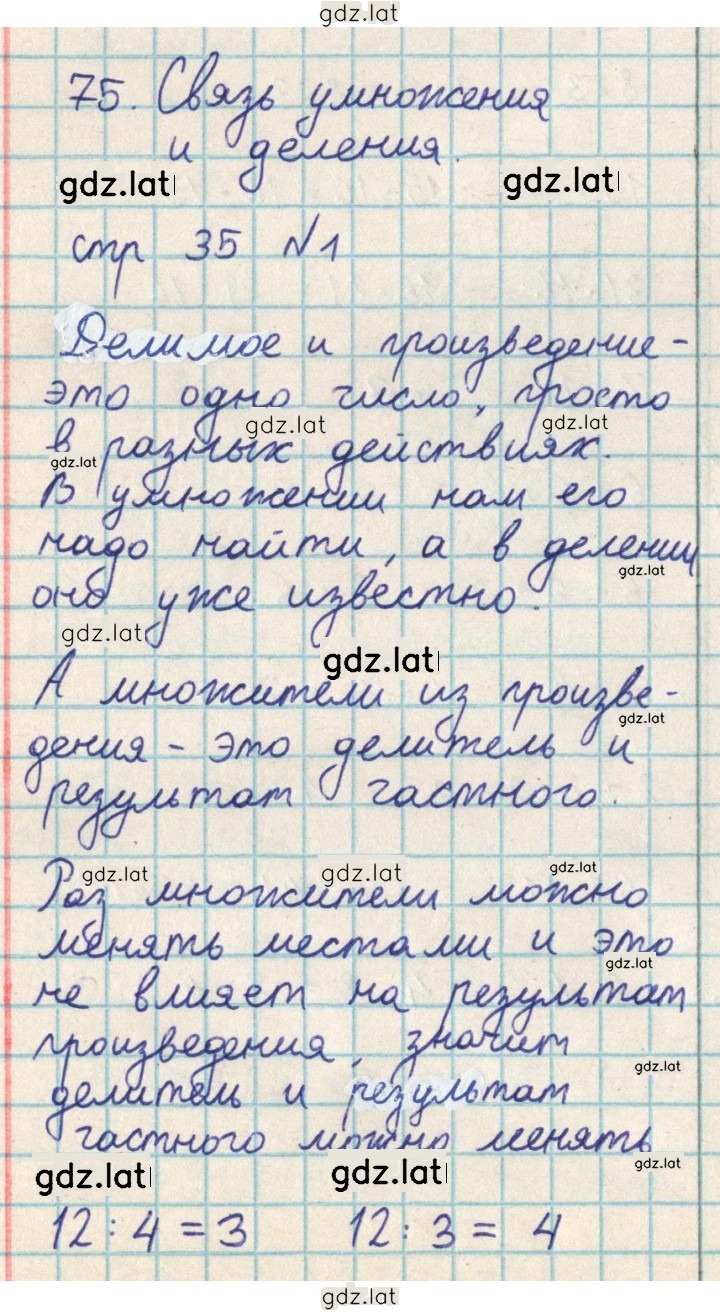 gdz.lat
75. Связь умножения
и деления.
gdz.lat gdz.lat
стр 35 №1
Делимое и произведение-
это одно число, просто
gdz.lat gdz.lat
в разных действиях.
gdz.lat
В умножении нам его
надо найти, а в делении
gdz.lat
оно уже известно.
gdz.lat
gdz.lat
А множители из произве-
gdz.lat
дения - это делитель и
результат частного.
gdz.lat gdz.lat gdz.lat
Раз множители можно
менять местами и это
gdz.lat
не влияет на результат
произведения, значит
gdz.lat
делитель и результат
частного можно менять
gdz.lat gdz.lat gdz.lat
12 : 4 = 3 12 : 3 = 4
gdz.lat